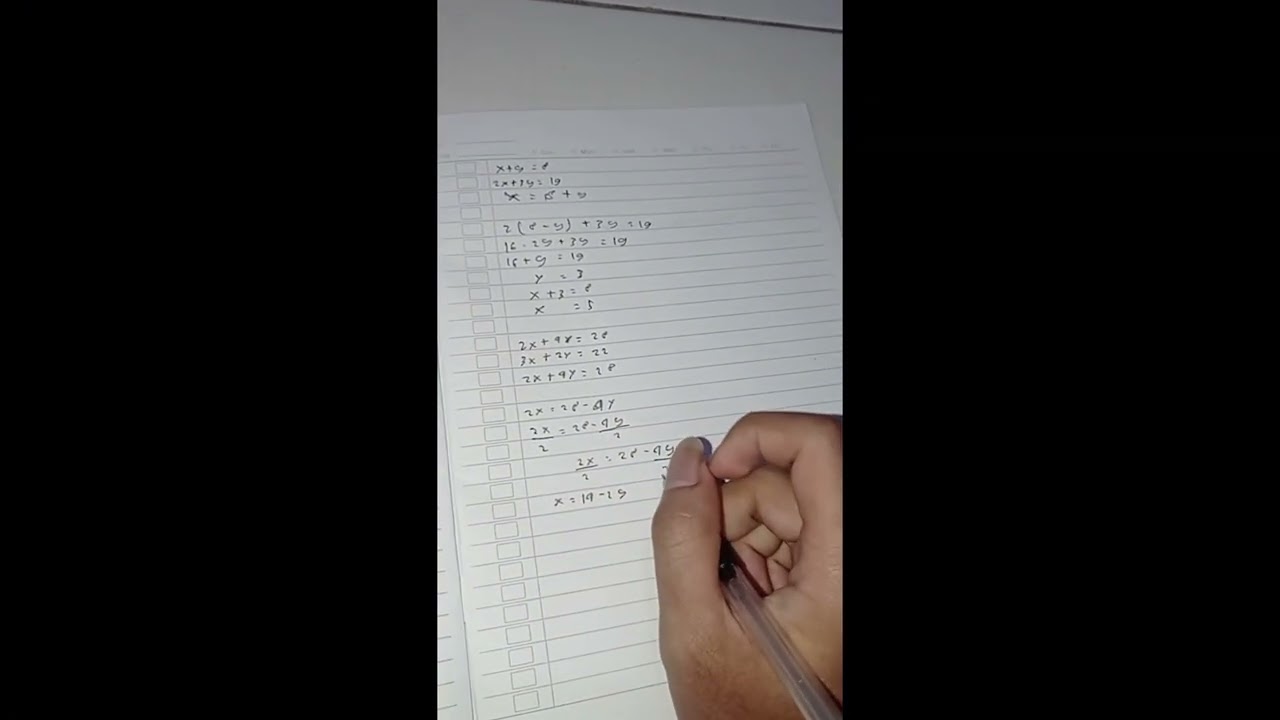 x+y = 8
2x+3y = 19
x = 8 + y
2(8-y) + 3y = 19
16 - 2y + 3y = 19
16 + y = 19
y = 3
x + 3 = 8
x = 5
2x + 4y = 28
3x + 2y = 22
2x + 4y = 28
2x = 28 - 4y
2x/2 = 28 - 4y/2
2x/2 = 28 - 4y
x = 14 - 2y